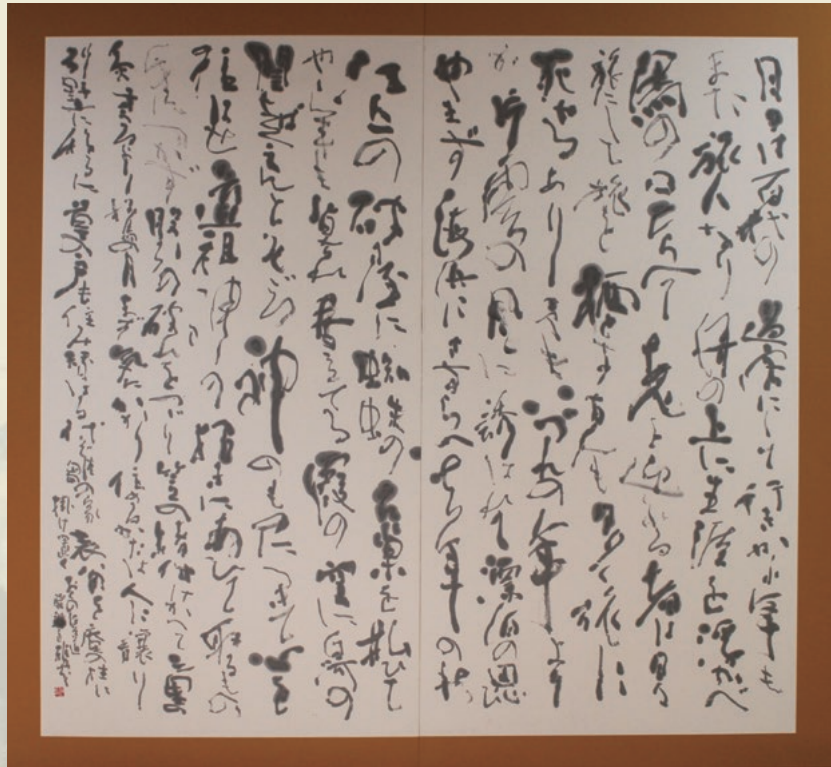 月日は百代の過客にして行きかふ年も
また旅人なり舟の上に生涯を浮かべ
馬の口とらへて老を迎ふる者は日々
旅にして旅を栖とす古人も多く旅に
死せるあり予もいづれの年より
か片雲の風に誘はれて漂泊の思ひ
やまず海浜にさすらへ去年の秋
江上の破屋に蜘蛛の古巣を払ひて
やゝ年も暮れ春立てる霞の空に白河の
関越えんとそぞろ神のものにつきて心を
狂はせ道祖神の招きにあひて取るもの
手につかず股引の破れをつづり笠の緒付けかへて三里
灸すうるより松島の月まづ心にかかりて住める方は人に譲り
別墅に移るに草の戸も住み替はる代ぞ雛の家表八句を庵の柱に
掛け置く おくのほそ道